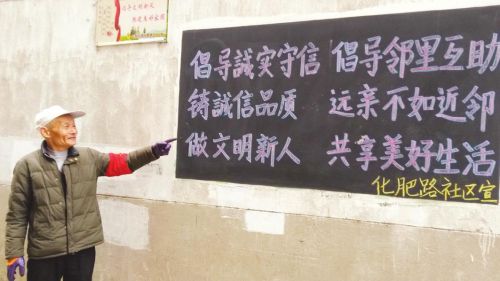 倡导誠实守信 倡导邻里互助
铸誠信品质 远亲不如近邻
做文明新人 共享美好生活
化肥路社区宣